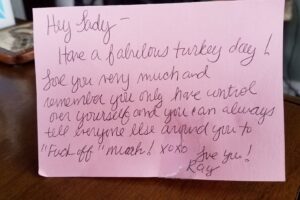 Hey Lady -
Have a fabulous turkey day!
Love you very much and
remember you only have control
over yourself and you can always
tell everyone else around you to
"Fuck off" muah! xoxo
Love you!
Ray